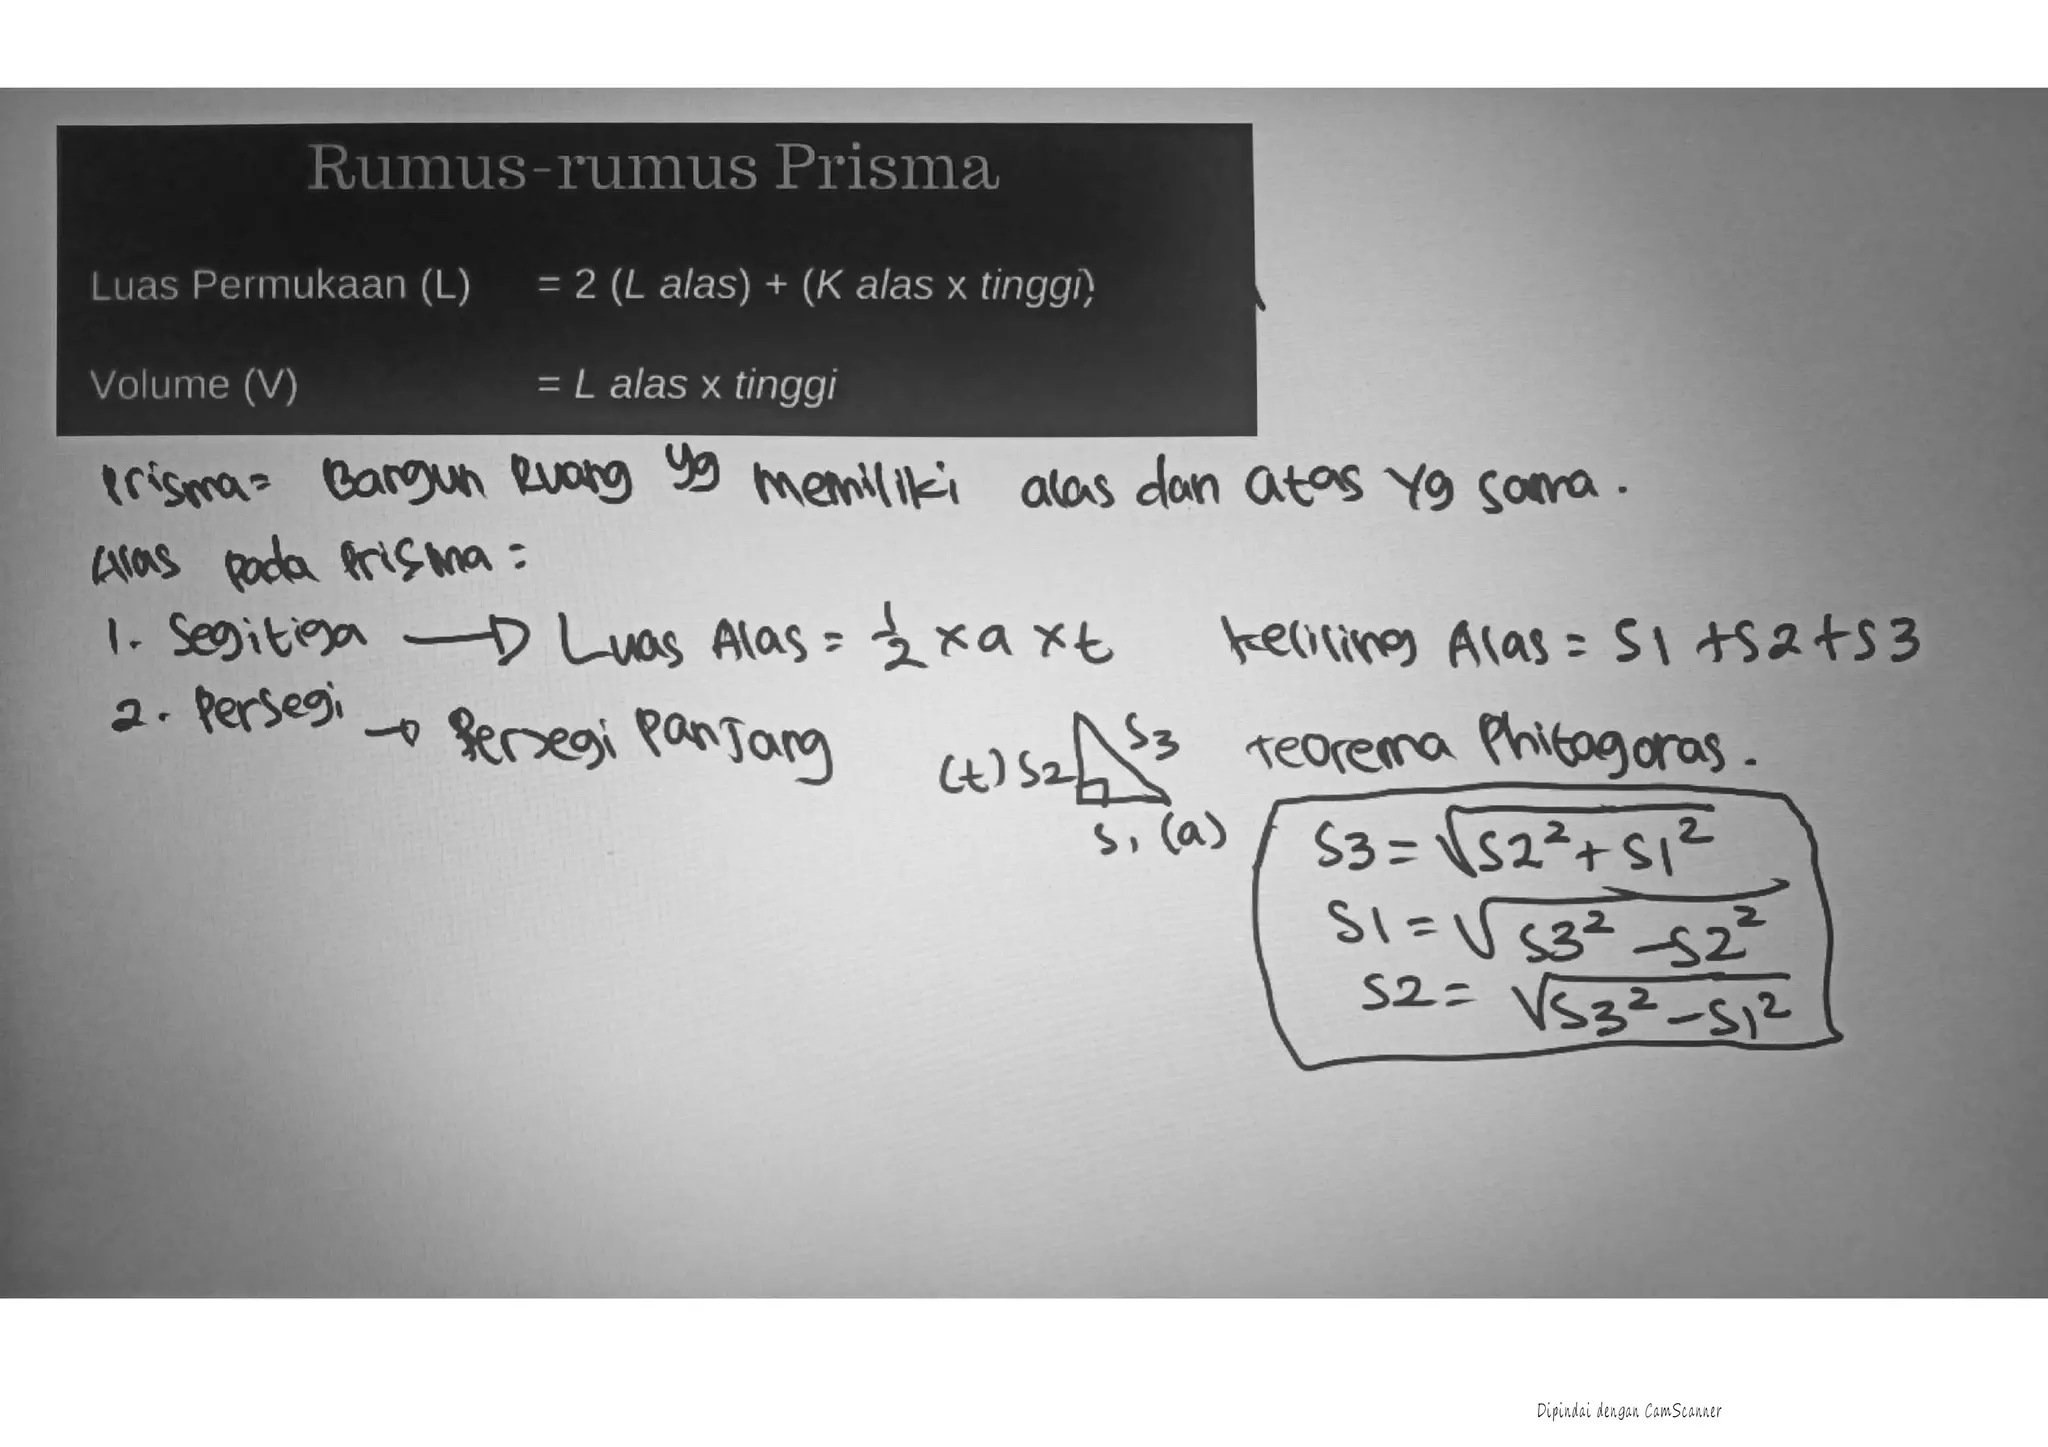 Rumus-rumus Prisma
Luas Permukaan (L) = 2 (L alas) + (K alas x tinggi)
Volume (V) = L alas x tinggi
Prisma = Bangun Ruang yg memiliki alas dan atas yg sama.
Alas pada Prisma =
1. Segitiga → Luas Alas = 1/2 x a x t keliling Alas = S1 + S2 + S3
2. Persegi → Persegi Panjang
(t) S2 S3 Teorema Phitagoras.
S1 (a)
S3 = √S2² + S1²
S1 = √S3² - S2²
S2 = √S3² - S1²
Dipindai dengan CamScanner